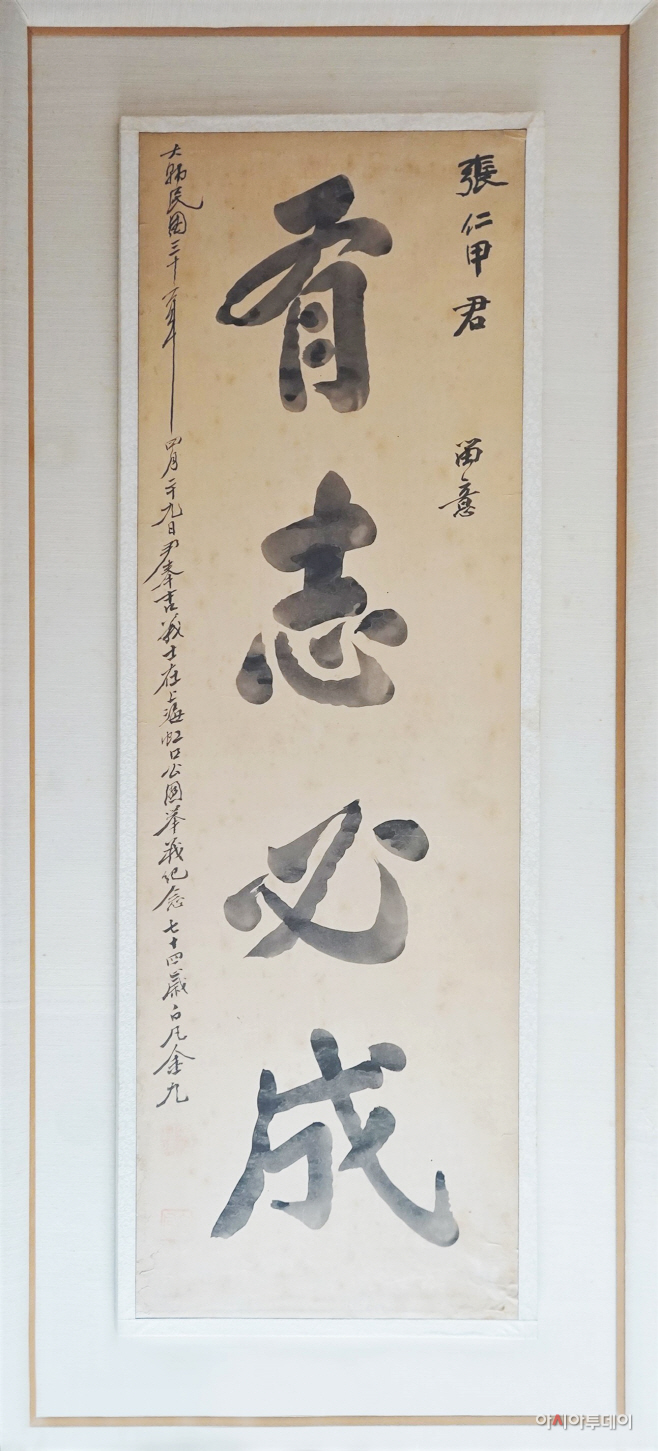 張仁甲君 留意
有志必成
大韓民國三十一年四月二十九日尹奉吉義士在上海虹口公園擧義紀念七十四歲白凡金九
아시아투데이